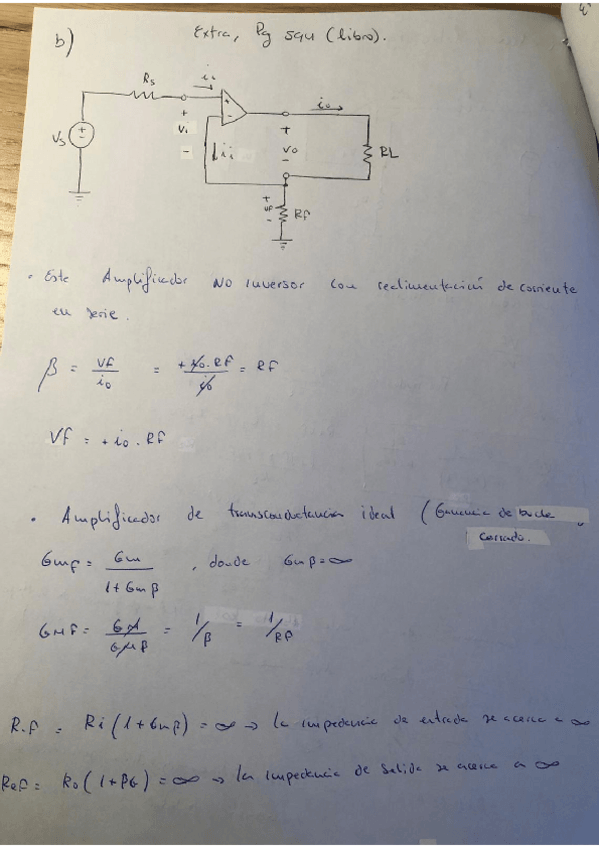 b)
Extra, Pg 594 (libro).
Rs
ii
io
+
Vi
-
Vs
ii
+
Vo
-
RL
+
Vf
-
Rf
• Este Amplificador NO inversor con realimentación de corriente
en serie.
β = Vf/io = +io.Rf/io = Rf
Vf = + io . Rf
• Amplificador de transconductancia ideal (Ganancia de bucle
cerrado.
Gmf = Gm/(1+Gmβ) , donde Gmβ=∞
GMf = GM/GMβ = 1/β = 1/Rf
Rif = Ri(1+Gmβ) = ∞ → la impedancia de entrada se acerca a ∞
Rof = Ro(1+βG) = ∞ → la impedancia de salida se acerca a ∞